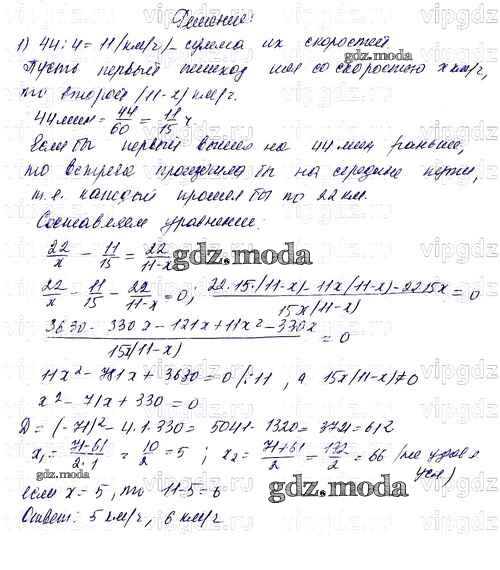 Решение:
1) 44 : 4 = 11 (км/ч) – сумма их скоростей.
Пусть первый пешеход шел со скоростью x км/ч,
то второй (11-x) км/ч.
44 мин = 44/60 = 11/15 ч
Если бы первый вышел на 44 мин раньше,
то встреча произошла бы на середине пути,
т.е. каждый прошел бы по 22 км.
Составляем уравнение:
22/x - 11/15 = 22/11-x
gdz.moda
22/x - 11/15 - 22/11-x = 0; 22·15·(11-x) - 11x(11-x) - 22·15x / 15x(11-x) = 0
3630 - 330x - 121x + 11x² - 330x / 15x(11-x) = 0
11x² - 781x + 3630 = 0 /:11, а 15x(11-x)≠0
x² - 71x + 330 = 0
gdz.moda
D = (-71)² - 4·1·330 = 5041 - 1320 = 3721 = 61²
x₁ = 71-61/2·1 = 10/2 = 5; x₂ = 71+61/2 = 132/2 = 66 (не удовл.
усл)
если x = 5, то 11-5 = 6
gdz.moda
Ответ: 5 км/ч, 6 км/ч
vipgdz